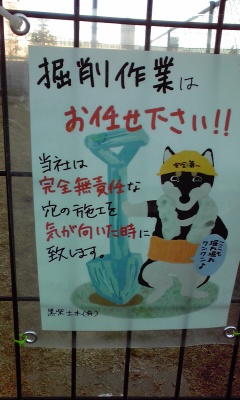 掘削作業は
お任せ下さい!!
当社は
完全無責任な
穴の施工を
気が向いた時に
致します。
安全第一
ワンワン♪
黒柴土木(有)